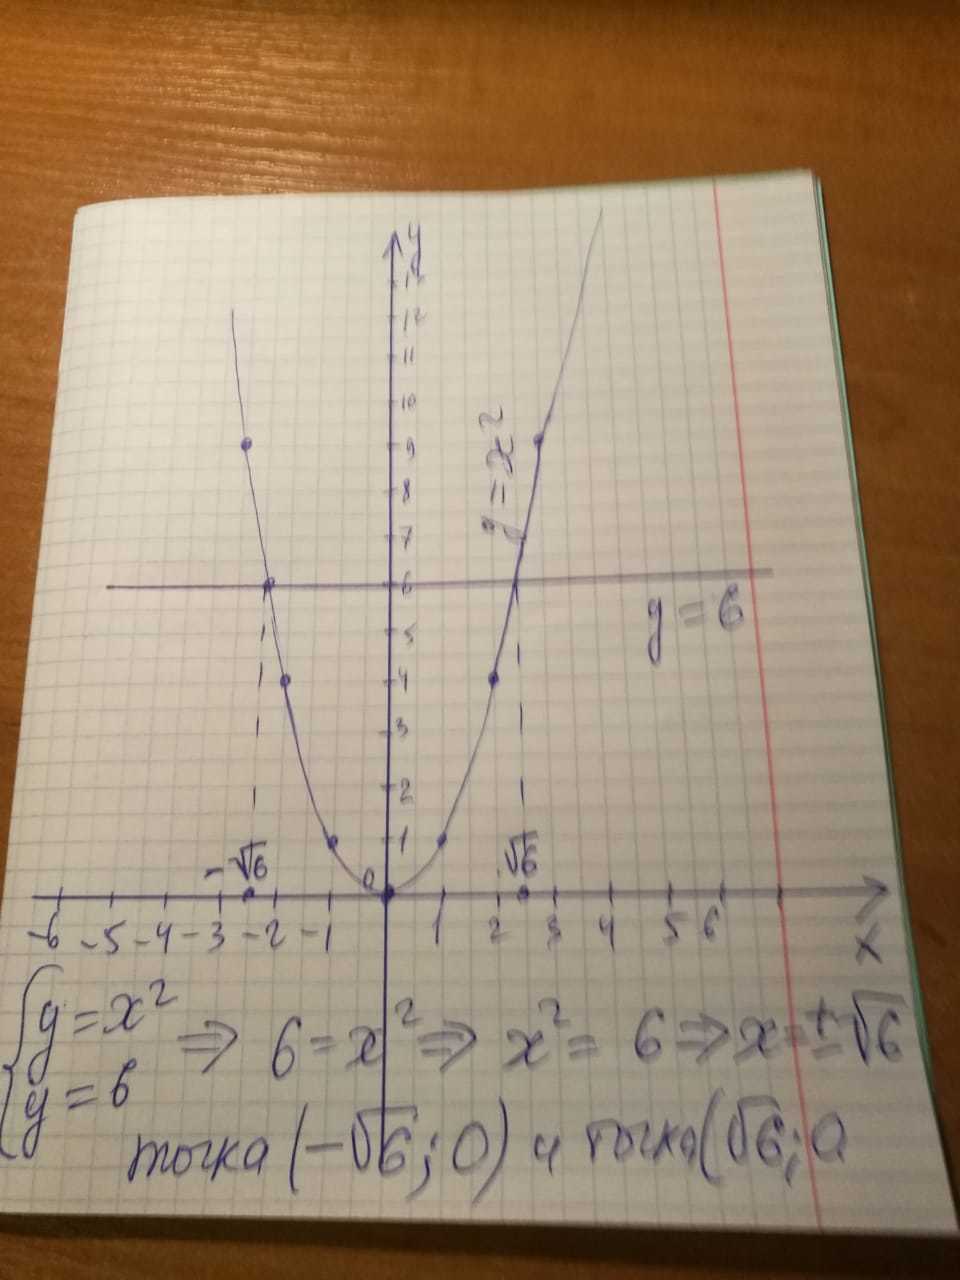 y
13
12
11
10
9
8
7
6
5
4
3
2
1
0
y = x²
y = 6
-√6
√6
-6 -5 -4 -3 -2 -1 1 2 3 4 5 6
x
{ y = x²
y = 6
⇒ 6 = x² ⇒ x² = 6 ⇒ x = ±√6
точка (-√6; 0) и точка (√6; 0